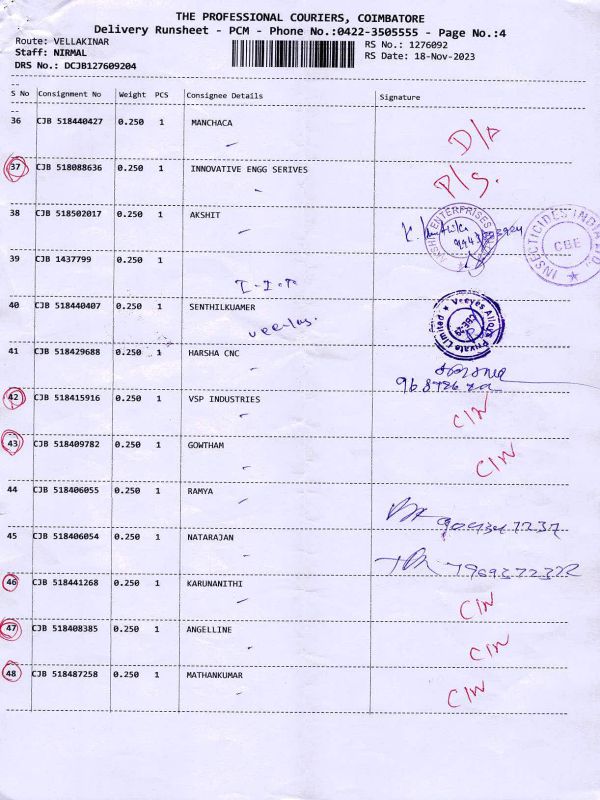 THE PROFESSIONAL COURIERS, COIMBATORE
Delivery Runsheet - PCM - Phone No.:0422-3505555 - Page No.:4
Route: VELLAKINAR
RS No.: 1276092
Staff: NIRMAL
RS Date: 18-Nov-2023
DRS No.: DCJB127609204
S No Consignment No Weight PCS Consignee Details Signature
36 CJB 518440427 0.250 1 MANCHACA D/A
37 CJB 518088636 0.250 1 INNOVATIVE ENGG SERIVES P/S.
38 CJB 518502017 0.250 1 AKSHIT
ENTERPRISES
INSECTICIDES INDIA LTD.
CBE
39 CJB 1437799 0.250 1
I-I-T
40 CJB 518440407 0.250 1 SENTHILKUAMER
Veeyes Alloys Private Limited
CBE-29
41 CJB 518429688 0.250 1 HARSHA CNC
42 CJB 518415916 0.250 1 VSP INDUSTRIES C/N
43 CJB 518409782 0.250 1 GOWTHAM C/N
44 CJB 518406055 0.250 1 RAMYA
45 CJB 518406054 0.250 1 NATARAJAN
46 CJB 518441268 0.250 1 KARUNANITHI C/N
47 CJB 518408385 0.250 1 ANGELLINE C/N
48 CJB 518487258 0.250 1 MATHANKUMAR C/N